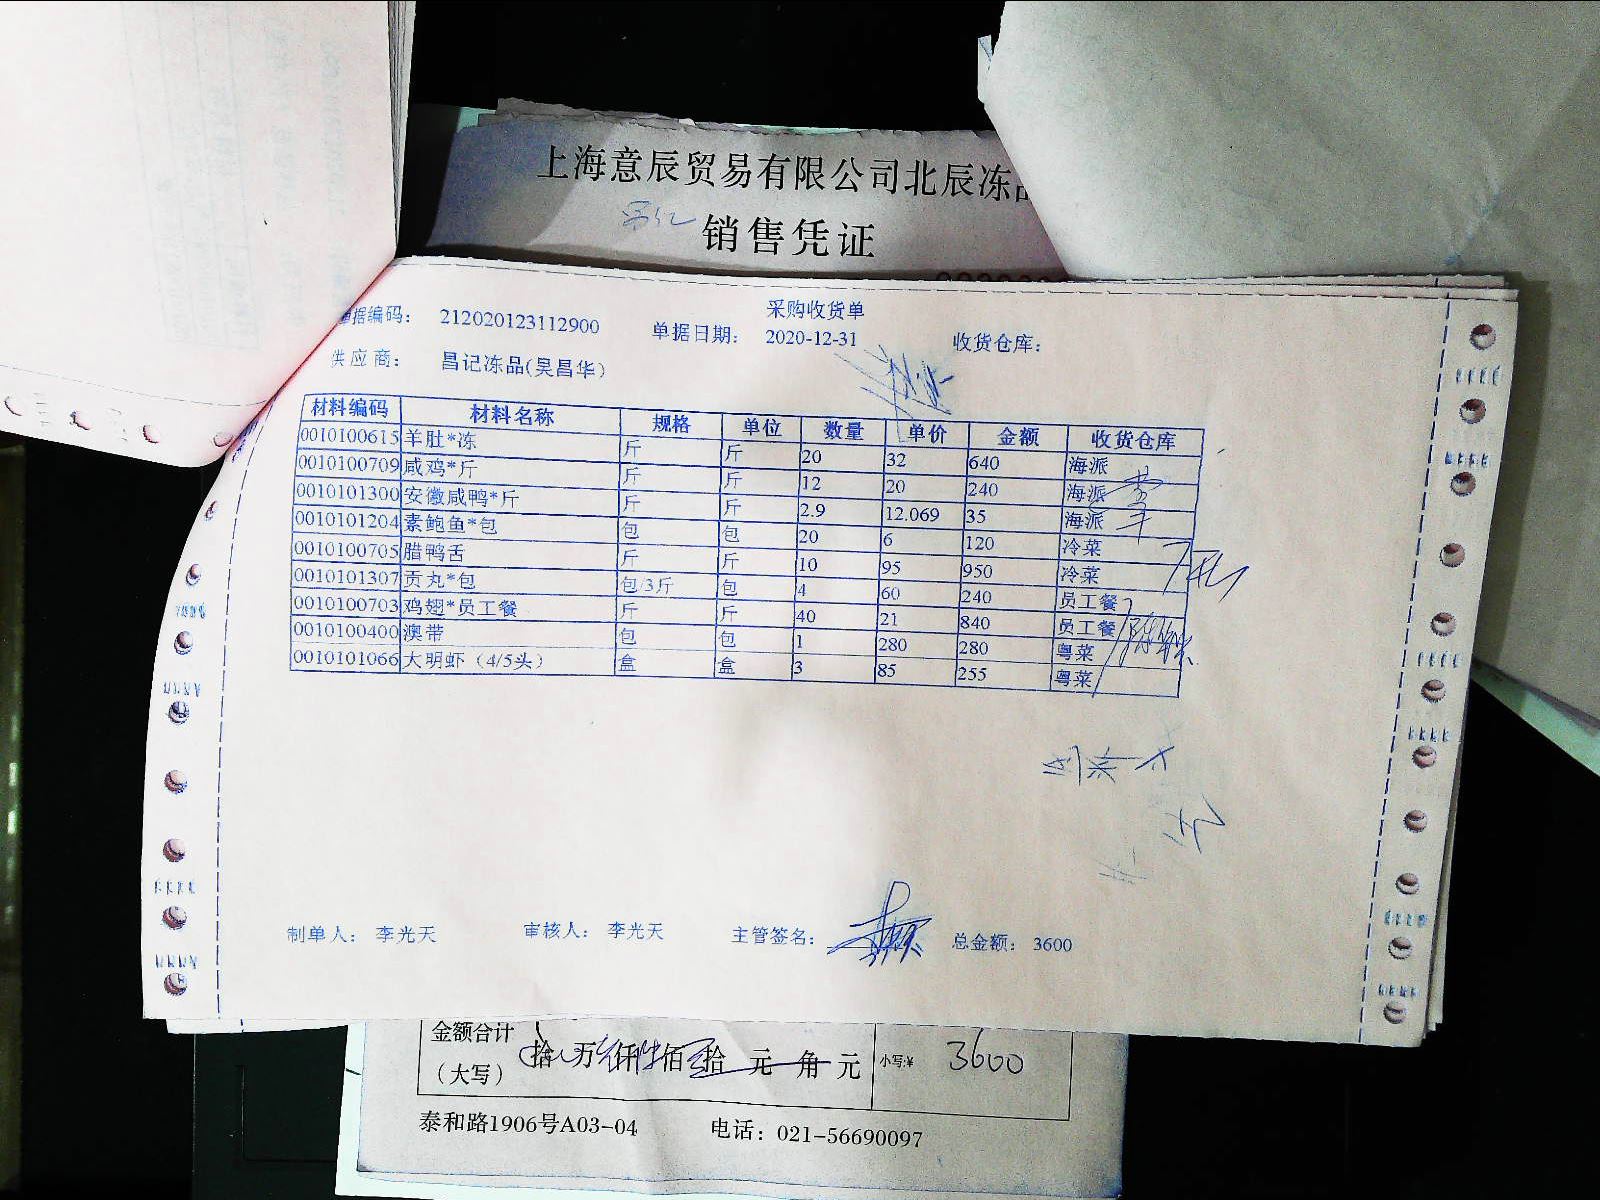 上海意辰贸易有限公司北辰冻
销售凭证
采购收货单
据编码： 212020123112900 单据日期： 2020-12-31 收货仓库：
供应商： 昌记冻品(吴昌华)
材料编码 材料名称 规格 单位 数量 单价 金额 收货仓库
0010100615 羊肚*冻 斤 斤 20 32 640 海派
0010100709 咸鸡*斤 斤 斤 12 20 240 海派
0010101300 安徽咸鸭*斤 斤 斤 2.9 12.069 35 海派
0010101204 素鲍鱼*包 包 包 20 6 120 冷菜
0010100705 腊鸭舌 斤 斤 10 95 950 冷菜
0010101307 贡丸*包 包/3斤 包 4 60 240 员工餐
0010100703 鸡翅*员工餐 斤 斤 40 21 840 员工餐
0010100400 澳带 包 包 1 280 280 粤菜
0010101066 大明虾（4/5头） 盒 盒 3 85 255 粤菜
制单人： 李光天 审核人： 李光天 主管签名： 总金额： 3600
金额合计（大写） 拾 万 仟 佰 拾 元 角 元 小写:¥ 3600
泰和路1906号A03-04 电话：021-56690097